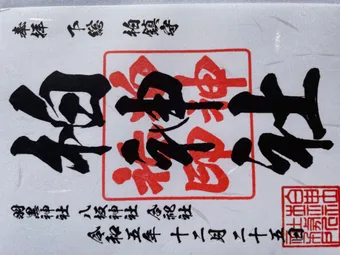 奉拝 下総 柏鎮守
柏神社
柏神社印
羽黒神社 八坂神社 合祀社
令和五年十二月二十五日